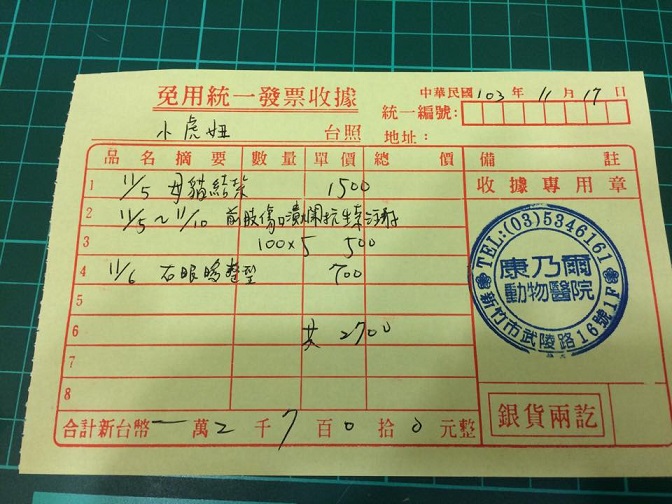 免用統一發票收據
中華民國 103 年 11 月 17 日
統一編號:
小虎妞 台照 地址:
品名摘要 數量 單價 總價 備註
1 11/5 母貓結紮 1500
收據專用章
2 11/5～11/10 前肢傷口潰爛抗生素注射
3 100×5 500
4 11/6 右眼瞼整型 700
5
6 共 2700
7
8
TEL:(03)5346161
康乃爾
動物醫院
新竹市武陵路16號1F
銀貨兩訖
合計新台幣 一 萬 2 千 7 百 0 拾 0 元整